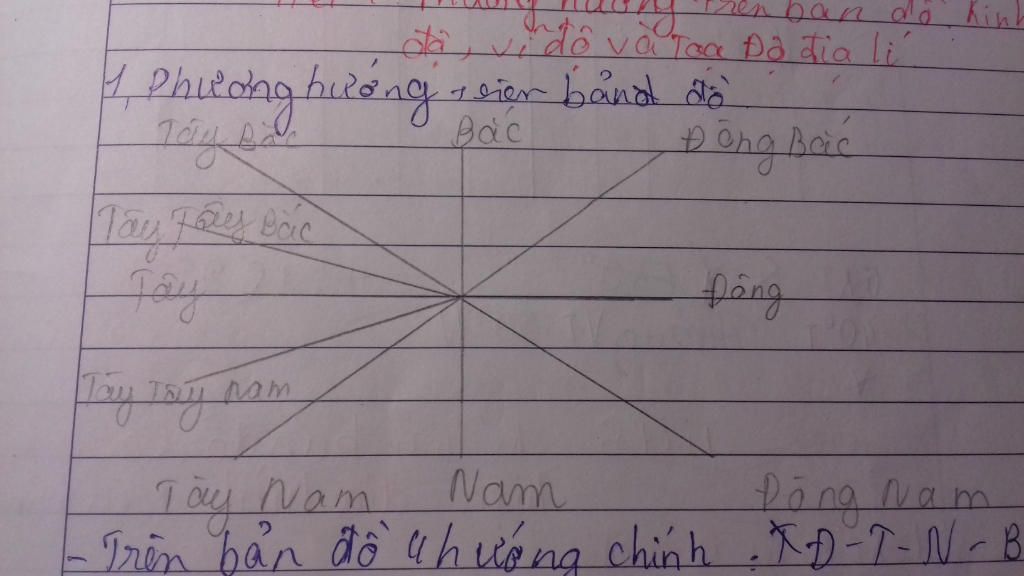 Phương hướng trên bản đồ Kinh
độ, vĩ độ và Tọa Độ địa lí
1, Phương hướng trên bản đồ
Tây Bắc Bắc Đông Bắc
Tây Tây Bắc
Tây Đông
Tây Tây Nam
Tây Nam Nam Đông Nam
- Trên bản đồ 4 hướng chính : Đ - T - N - B